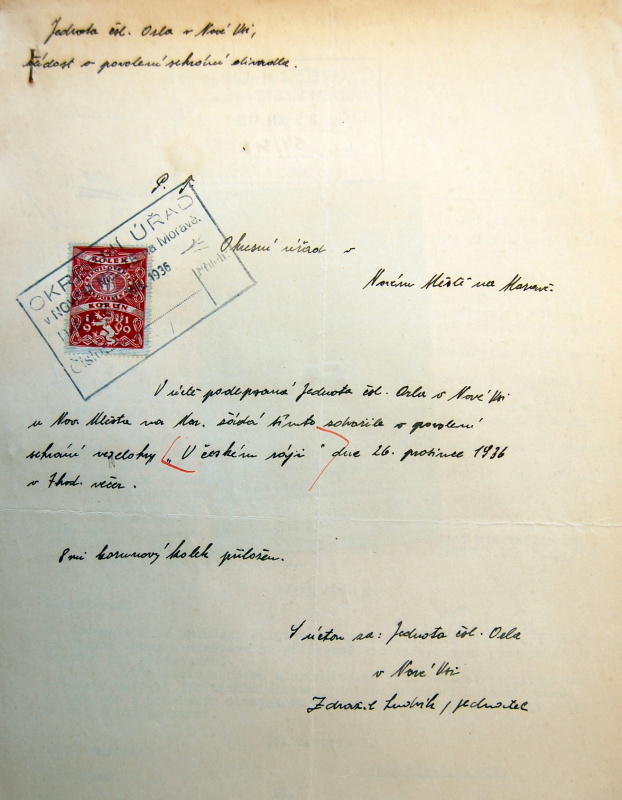 Jednota čsl. Orla v Nové Vsi,
žádost o povolení sehrání divadla.
P. T.
OKRESNÍ ÚŘAD
v NOVÉM Městě na Moravě.
1936
Příloh:
Číslo
KOLEK
KORUN
1919
Okresní úřad v
Novém Městě na Moravě.
V úctě podepsaná Jednota čsl. Orla v Nové Vsi
u Nov. Města na Mor. žádá tímto zdvořile o povolení
sehrání veselohry „V českém ráji" dne 26. prosince 1936
v 7 hod. večer.
korunový kolek přiložen.
S úctou za: Jednota čsl. Orla
v Nové Vsi
Zdražil Ludvík, jednatel